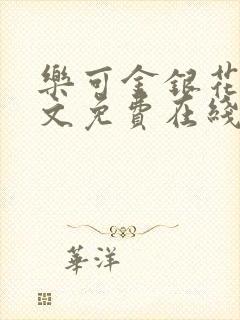 樂可金銀花
文免費在綫
華洋